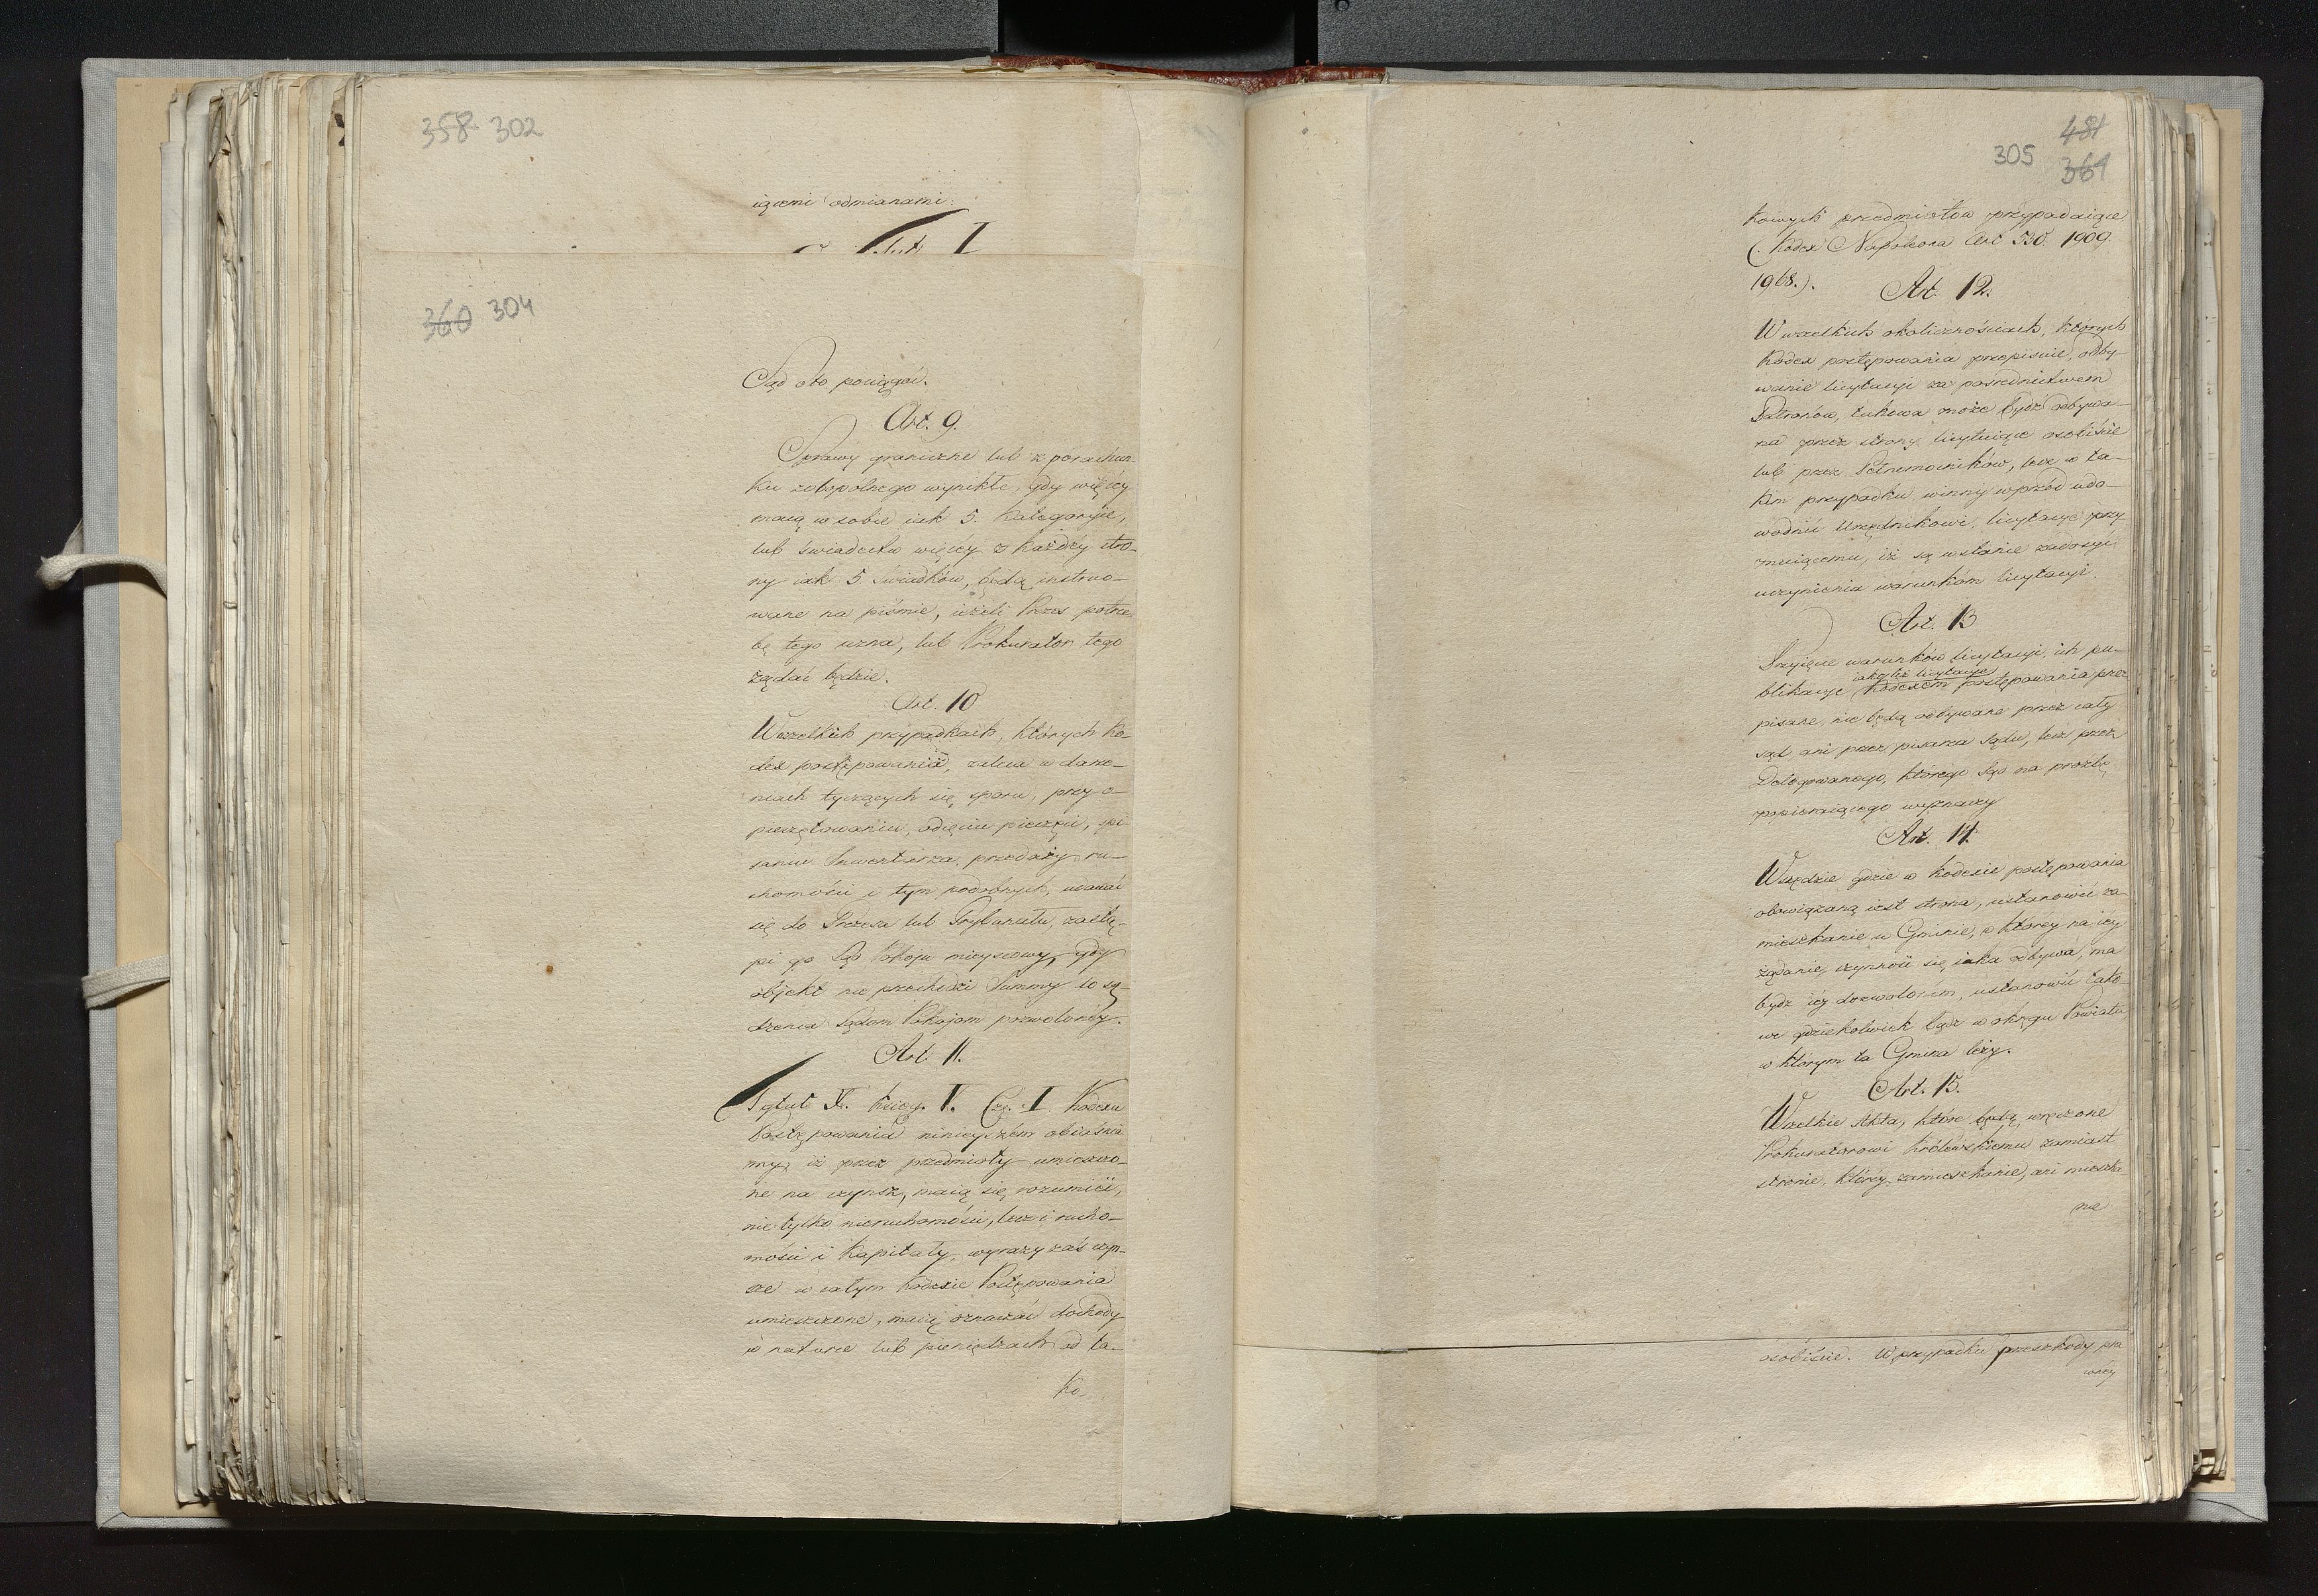 358 302
iącemi odmianami:
I
360 304
Sąd oto pociągać.
Art. 9.
Sprawy graniczne lub z porachun-
ku zobopolnego wynikłe, gdy więcéy
maią w sobie iak 5. Kategoryie,
lub świadectw więcéy z każdéy stro-
ny iak 5. Świadków, będą instruo-
wane na piśmie, ieżeli Prezes potrze
bę tego uzna, lub Prokurator tego
żądać będzie.
Art. 10
W wszelkich przypadkach, których Ko-
dex postępowania, zaleca w
niach tyczących się sporu, przy o-
pieczętowaniu, odięciu pieczęci, spi-
saniu Inwentarza, przedaży ru-
chomości i tym podobnych, udawać
się do Prezesa lub Trybunału, zastą-
pi go Sąd Pokoju mieyscowy, gdy
objekt nie przechodzi Summy do są-
dzenia Sądom Pokojom pozwolonéy.
Art. 11.
Tytuł V. Księgi V. Czę. I Kodexu
Postępowania ninieyszém obiaśnia
my, iż przez przedmioty umieszczo-
ne na czynsz, maią się rozumieć,
nie tylko nieruchomości, lecz i rucho-
mości i Kapitały, wyrazy zaś czyn-
sze w całym Kodexie Postępowania
umieszczone, maią oznaczać dochody
w naturze lub pieniędzach od ta-
Ko-
481
305 361
kowych przedmiotów przypadaiące
(Kodex Napoleona Art 530. 1909.
1968.).
Art. 12.
W wszelkich okolicznościach, których
Kodex postępowania przepisuie, odby-
wanie licytacyi za pośrednictwem
Patronów, takowa może bydź odbywa-
na przez strony licytuiące osobiście
lub przez Pełnomocników, lecz w ta-
kim przypadku winny wprzód udo-
wodnić Urzędnikowi, licytacye przy
muiącemu, iż są w stanie zadosyć
uczynienia warunkóm licytacyi.
Art. 13
Przyięcie warunków licytacyi, ich pu-
iakoteż licytacye
blikacye Kodexem postępowania prze
pisane, nie będą odbywane przez cały
sąd ani przez pisarza Sądu, lecz przez
Delegowanego, którego Sąd na prożbę
popieraiącego wyznaczy
Art. 14.
Wszędzie gdzie w Kodexie postępowania
obowiązaną iest strona, ustanowić za-
mieszkanie w Gminie, w któréy na iéy
żądanie, czynność się iaka odbywa, ma
bydź iéy dozwoloném, ustanowić tako-
we gdziekolwiek bądź w okręgu Powiatu,
w którym ta Gmina leży.
Art. 15.
Wszelkie Akta, które będą wręczone
Prokuratorowi Królewskiemu zamiast
stronie, któréy zamieszkanie, ani mieszka
nie
osobiście. W przypadku przeszkody pra
wnéy